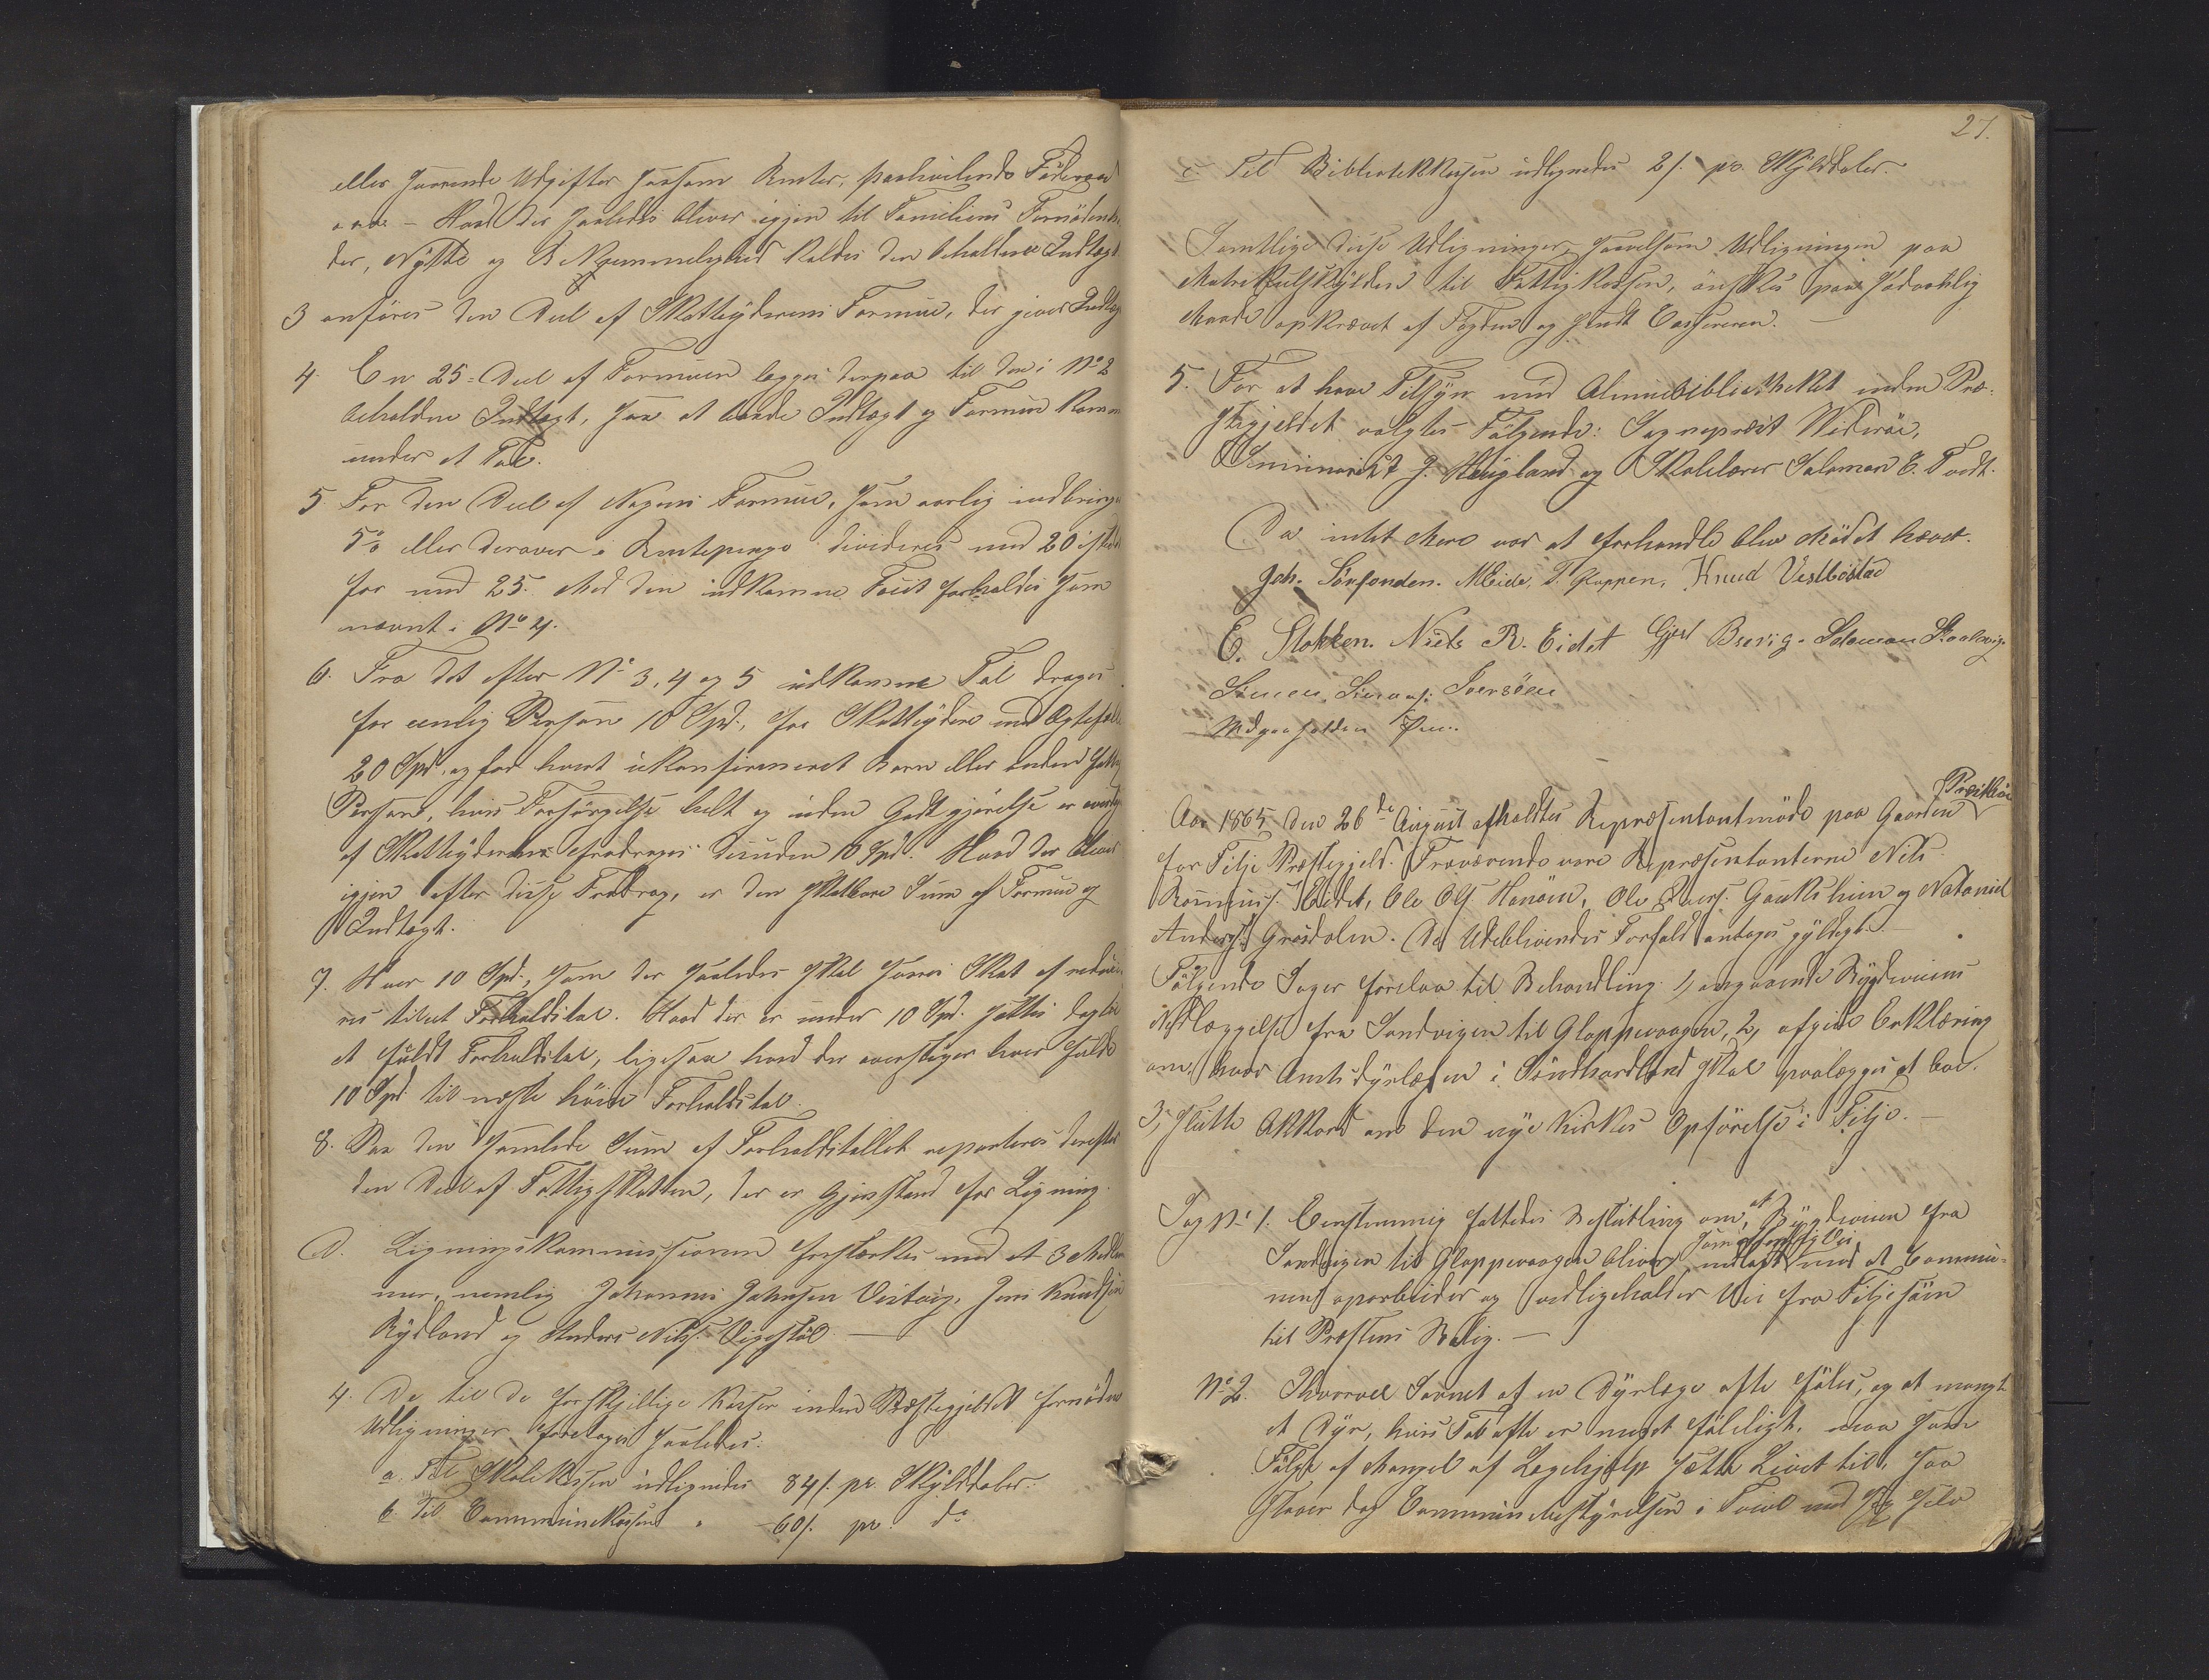 eller Udgifter saasom Renter, paahvilende Føderaad
– Hvad der saaledes bliver igjen til Familiens Fornødenhe-
der, Nytte og Bekvemmelighed kaldes den beholdne Indtægt.
3 anføres den Deel af Skatteyderens Formue, der giver Indtægt
4. En 25-Deel af Formuen lægges derpaa til den i No 2
beholdne Indtægt, saa at baade Indtægt og Formue kommer
under et Tal.
5. For den Deel af Nogens Formue, som aarlig indbringer
5% eller derover i Rentepenge divideres med 20 istedet
for med 25. Med den udkomne forholdes som
nævnt i No 4.
6. Fra det efter No 3, 4 og 5 udkomne Tal drages
for enlig Person 10 Spd., for Skatteydere med Ægtefælle
20 Spd. og for hvert ukonfirmeret Barn eller anden
Person, hvis Forsørgelse helt og uden Godtgjørelse er
af Skatteyderen fradrages desuden 10 Spd. Hvad der bliver
igjen efter disse Fradrag, er den skatbare Sum af Formue og
Indtægt.
7. Hver 10 Spd., som der saaledes skal svares Skat af
til et Forholdstal. Hvad der er under 10 Spd. sættes dog til
et fuldt Forholdstal, ligesaa hvad der overstiger hver fulde
10 Spd. til næste høiere Forholdstal.
8. Paa den samlede Sum af Forholdstallet reparteres derefter
den Deel af Fattigskatten, der er Gjenstand for Ligning.
D. Ligningskommissionen forstærkes med et 3 Medlem-
mer, nemlig Johannes Johnsen Vestvig, Jens Knudsen
Rydland og Anders Nils.
4. De til de forskjellige Kasser inden Præstegjeldet fornødne
Udligninger foretages saaledes:
a. Til Skolekassen udlignedes 84 s. pr. Skylddaler.
b. Til Communekassen " – 60 s. pr. do
27.
c. Til Bibliothekkassen udlignedes 2 s. pr. Skylddaler.
Samtlige disse Udligninger, saavelsom Udligningen paa
Matrikulskylden til Fattigkassen, ønskes paa sædvanlig
Maade opkrævet af Fogden og sendt Cassereren. –
5. For at have Tilsyn med Almuebibliotheket inden Præ-
stegjeldet valgtes Følgende: Sognepræst Widerøe,
Seminarist J. Haugland og Skolelærer Salamon E. Tvedt.
Da intet Mere var at forhandle blev Mødet hævet.
Joh. Sørfonden. MEide, T. Gloppen, Knud Vestbøstad
E. Stokken. Niels R. Eidet Gjert Brevig. Salomon
Simen Simons. Iversøen
Aar 1865 den 26de August afholdtes Repræsentantmøde paa Gaarden Præstbø
for Fitje Præstegjeld. Fraværende vare Repræsentanterne Nils
Rasmuss. Eidet, Ole Ols. Hanøen, Ole Gaukshiem og Nataniel
Anders. Græsdalen. De Udeblivendes Forfald antages gyldigt.
Følgende Sager forelaa til Behandling: 1, angaaende Bygdeveiens
Nedlæggelse fra Sandvigen til Gloppevaagen, 2, afgive Erklæring
om, hvor Amtsdyrlægen i Søndhordland skal paalægges at boe.
3, slutte Akkord om den nye Kirkes Opførelse i Fitje. –
Sag No 1. Eenstemmig fattedes Beslutning om, at Bygdeveien fra
Sandvigen til Gloppevaagen bliver som offentlig Vei nedlagt mod at Commu-
nen oparbeider og vedligeholder Vei fra Fitjesøen
til Præstens Bolig. –
No 2. Hvorvel Savnet af en Dyrlæge ofte føles, og at mangt
et Dyr, hvis Tab ofte er meget føleligt, maa som
Følge af Mangel af Lægehjelp sætte Livet til, saa
staaer dog Communebestyrelsen i Tvivl med sig selv